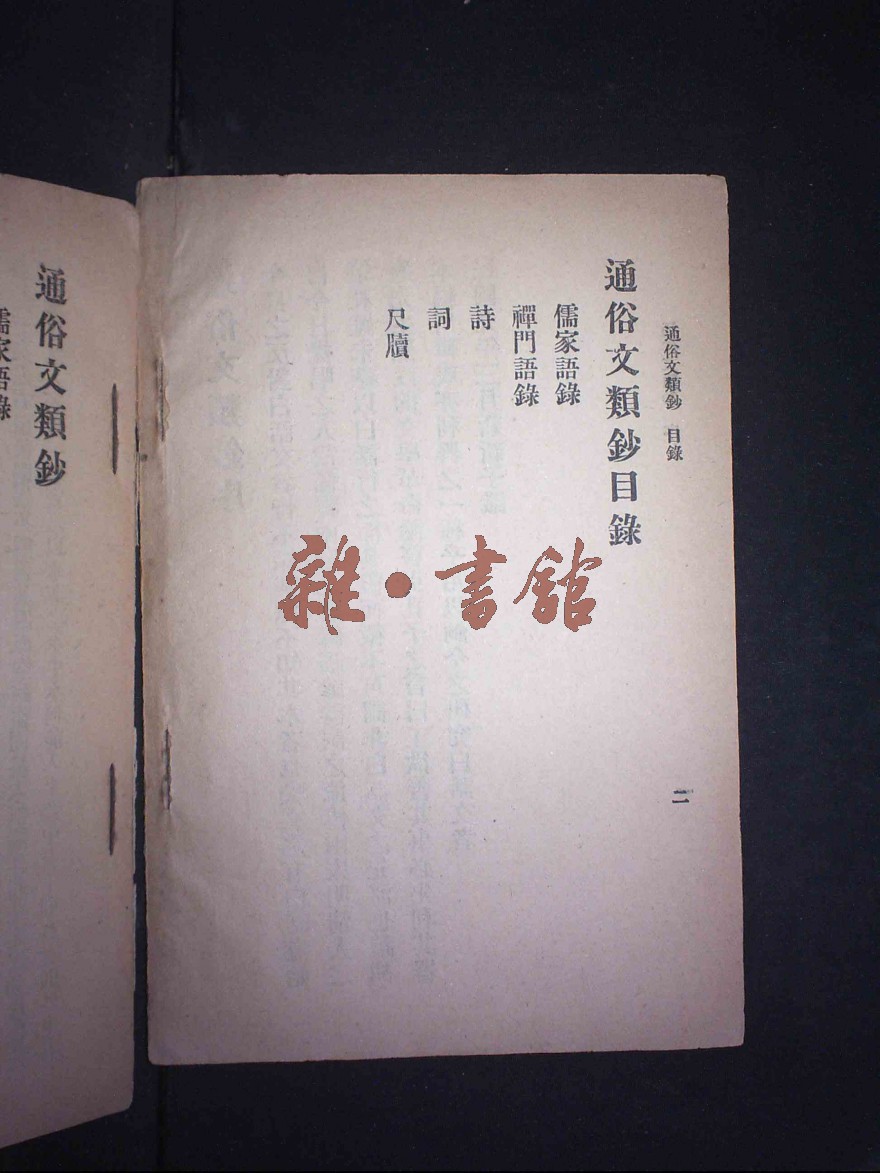 通俗文類鈔 目錄
二
通俗文類鈔目錄
儒家語錄
禪門語錄
詩
詞
尺牘
雜·書館
通俗文類鈔
儒家語錄